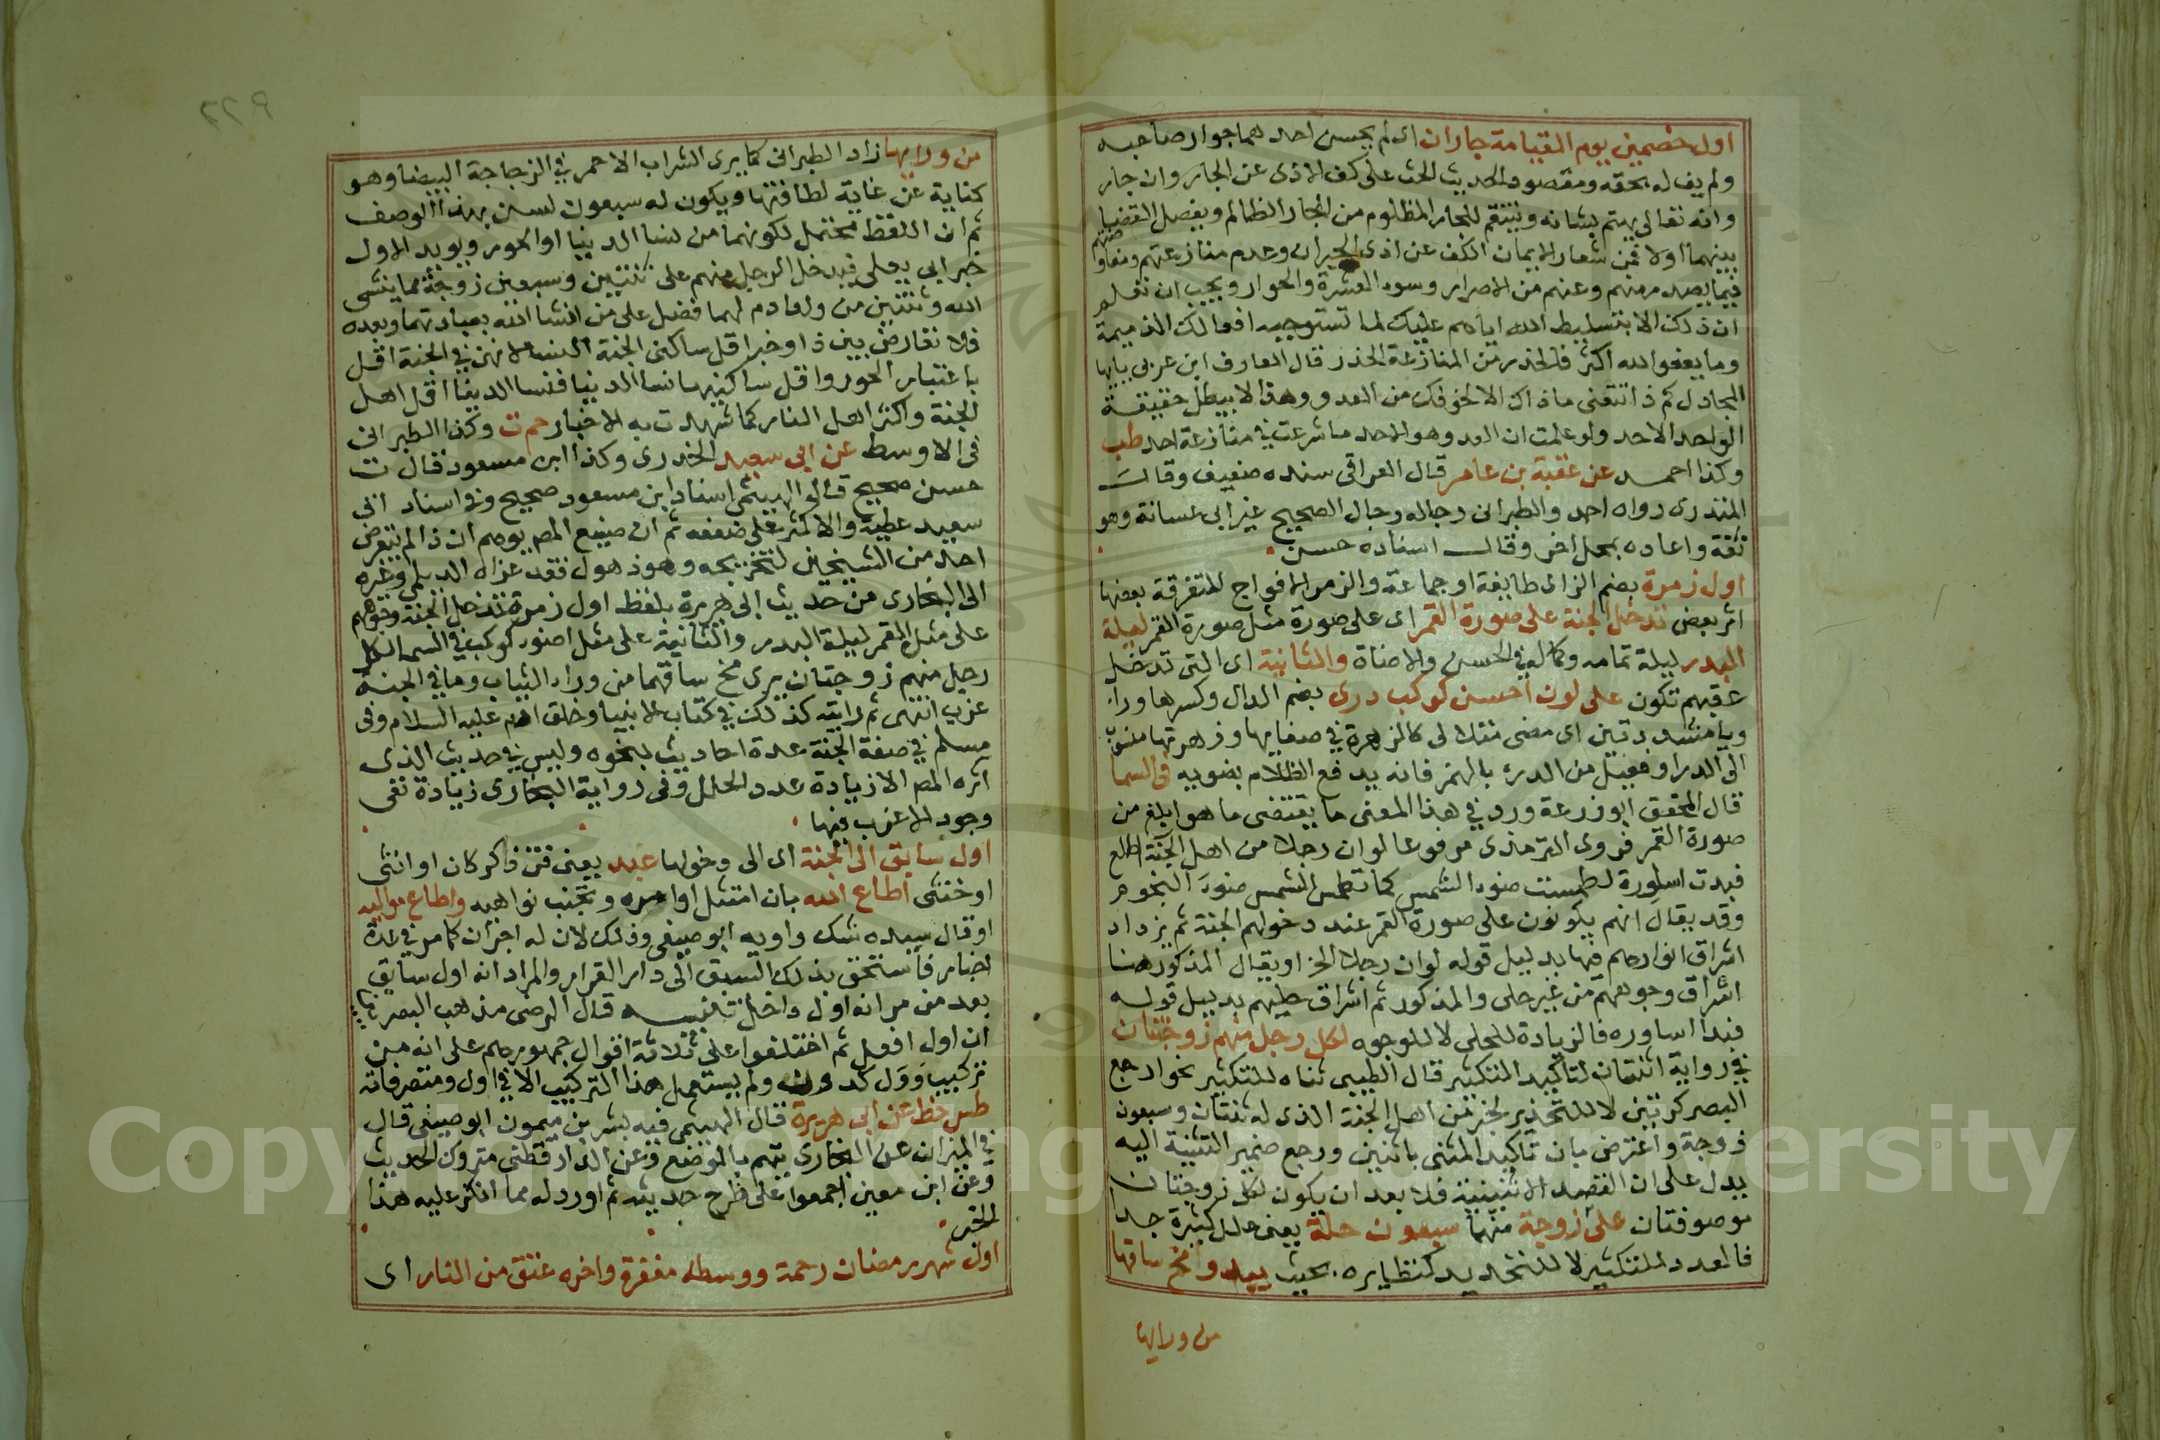 اول خصمين يوم القيامة جاران اى لم يحسن احدهما جوار صاحبه
ولم يف له بحقه ومقصود الحديث الحث على كف الاذى عن الجار وان جار
وانه تعالى يهتم بشانه وينتقم للجار المظلوم من الجار الظالم ويفصل القضايا
بينهما اولا فمن شعار الايمان الكف عن اذى الجيران وعدم منازعتهم ومعاوضتهم
فيما يصدر منهم وعنهم من الاضرار وسوء العشرة والجوار ويجب ان تعلم
ان ذلك الا بتسليط الله اياهم عليك لما تستوجبه افعالك الذميمة
وما يعفو الله اكثر فالحذر من المنازعة الحذر قال العارف ابن عربى يايها
المجادل كم ذا تتعنى ماذاك الا لخوفك من العدو وهذا لا يبطل حقيقة
الواحد الاحد ولو علمت ان العدد هو الاحد ما شرعت في منازعة احد طب
وكذا احمد عن عقبة بن عامر قال العراقى سنده ضعيف وقال
المنذرى رواه احمد والطبرانى رجاله رجال الصحيح غير ابى عسانة وهو
ثقة واعاده بمحل اخر وقال اسناده حسن
اول زمرة بضم الزاى طايفة او جماعة والزمر الافواج المتفرقة بعضها
اثر بعض تدخل الجنة على صورة القمر اى على صورة مثل صورة القمر ليلة
البدر ليلة تمامه وكماله في الحسن والاضاة والثانية اى التى تدخل
عقبهم تكون على لون احسن كوكب درى بضم الدال وكسرها وراء
وياء مشددتين اى مضى متلالى كالزهرة في صفايها وزهرتها منسوب
الى الدر او فعيل من الدرء بالهمز فانه يدفع الظلام بضويه فى السما
قال المحقق ابو زرعة ورد في هذا المعنى ما يقتضى ما هو ابلغ من
صورة القمر فروى الترمذى مرفوعا لو ان رجلا من اهل الجنة اطلع
فبدت اسورة لطمست ضوء الشمس كما تطمس الشمس ضوء النجوم
وقد يقال انهم يكونون على صورة القمر عند دخولهم الجنة ثم يزداد
اشراق انوارهم فيها بدليل قوله لو ان رجلا الخ او يقال المذكور هنا
اشراق وجوههم من غير حلى والمذكور ثم اشراق حليهم بدليل قوله
فبدا اساوره فالزيادة للحلى لا للوجوه لكل رجل منهم زوجتان
في رواية اثنتان لتاكيد التكثير قال الطيبى ثناه للتكثير نحو ارجع
البصر كرتين لا للتحديد لخبر من اهل الجنة الذى له ثنتان وسبعون
زوجة واعترض بان تاكيد المثنى باثنين ورجع ضمير التثنية اليه
يدل على ان القصد الاثنينية فلا بعد ان يكون لكل زوجتان
موصوفتان على زوجة منهما سبعون حلة يعنى حلل كثيرة جدا
فالعدد للتكثير لا للتحديد كنظايره بحيث يبدو مخ ساقها
من ورايها
٢٢٩
من ورايها زاد الطبرانى كما يرى الشراب الاحمر في الزجاجة البيضا وهو
كناية عن غاية لطافتها ويكون له سبعون لسن بهذا الوصف
ثم ان اللفظ محتمل لكونهما من نسا الدنيا او الحور ويويد الاول
خبر ابى يعلى فيدخل الرجل منهم على ثنتين وسبعين زوجة مما ينشى
الله وثنتين من ولد ادم لهما فضل على من انشا الله بعبادتهما وبعده
فلا تعارض بين ذا وخبر اقل ساكنى الجنة النسا لانهن في الجنة اقل
باعتبار الحور واقل ساكنيها نسا الدنيا فنسا الدنيا اقل اهل
الجنة واكثر اهل النار كما شهدت به الاخبار حم ت وكذا الطبرانى
فى الاوسط عن ابى سعيد الخدرى وكذا ابن مسعود قال ت
حسن صحيح قال الهيثمى اسناد ابن مسعود صحيح وفى اسناد ابى
سعيد عطية والاكثر على ضعفه ثم ان صنيع المصـ يوهم ان ذا لم يتعرض
احد من الشيخين لتخريجه وهو ذهول فقد عزاه الديلمى وغيره
الى البخارى من حديث ابى هريرة بلفظ اول زمرة تدخل الجنة وجوههم
على مثل القمر ليلة البدر والثانية على مثل اضوء كوكب في السما لكل
رجل منهم زوجتان يرى مخ ساقهما من وراء الثياب وما في الجنة
عزب انتهى ثم رايته كذلك في كتاب الانبيا وخلق ادم عليه السلام وفى
مسلم في صفة الجنة عدة احاديث بنحوه وليس في حديث الذى
اثره المصـ الا زيادة عدد الحلل وفى رواية البخارى زيادة نفى
وجود الاعزب فيها
اول سابق الى الجنة اى الى دخولها عبد يعنى قن ذاكر كان او انثى
او خنثى اطاع الله بان امتثل اوامره وتجنب نواهيه واطاع مواليه
او قال سيده شك راويه ابو صيفى وذلك لان له اجران كما مر في عدة
اخبار فاستحق بذلك السبق الى دار القرار والمراد انه اول سابق
بعد من مر انه اول داخل تنبيه قال الرضى مذهب البصريين
ان اول افعل ثم اختلفوا على ثلاثة اقوال جمهورهم على انه من
تركيب وول كددن ولم يستعمل هذا التركيب الا في اول ومتصرفاته
طس خط عن ابى هريرة قال الهيثمى فيه بشر بن ميمون ابو صيفى قال
في الميزان عن البخارى يتهم بالوضع وعن الدارقطنى متروك الحديث
وعن ابن معين اجمعوا على طرح حديثه ثم اورد له مما انكر عليه هذا
الخبر
اول شهر رمضان رحمة ووسطه مغفرة واخره عتق من النار اى
Copyright © King Saud University